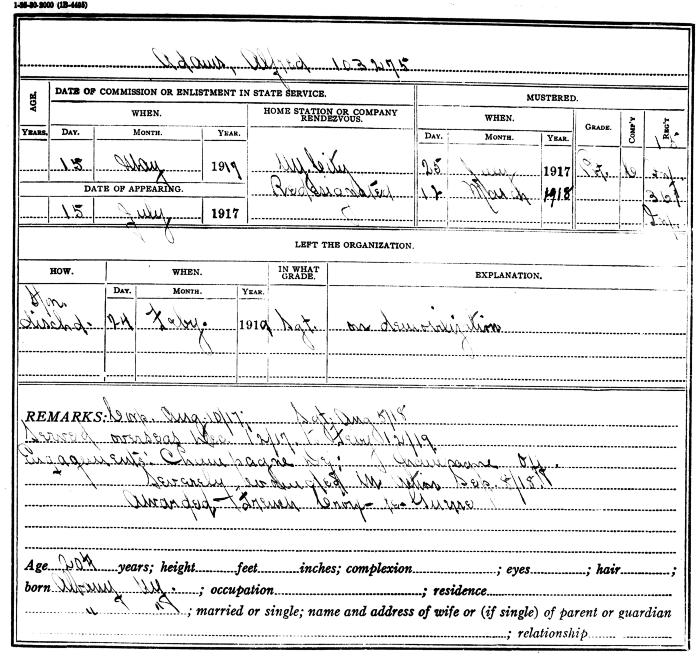 1-26-20-2000 (1B-4485)
Adams, Alfred 103275
AGE.
DATE OF COMMISSION OR ENLISTMENT IN STATE SERVICE.
HOME STATION OR COMPANY RENDEZVOUS.
MUSTERED.
WHEN.
WHEN.
GRADE.
COMP'Y
REG'T
YEARS.
DAY. MONTH. YEAR.
DAY. MONTH. YEAR.
15 May 1917
NY City
25 1917 Pvt. C
DATE OF APPEARING.
Redesignated
12 March 1918 369
15 July 1917
Inf.
LEFT THE ORGANIZATION.
HOW. WHEN. IN WHAT GRADE. EXPLANATION.
DAY. MONTH. YEAR.
Hon.
dischd. 24 Feby. 1919 Sgt. on demobilization
REMARKS: Corp. Aug 10/17; Sgt. Aug 8/18
Served overseas Dec 12/17 12/19
Engagements: Champagne Def; Champagne Off.
Severely wounded in action Sep.
Awarded French Croix de Guerre
Age years; height feet inches; complexion ; eyes ; hair ;
born Albany NY. ; occupation ; residence
" " ; married or single; name and address of wife or (if single) of parent or guardian
; relationship